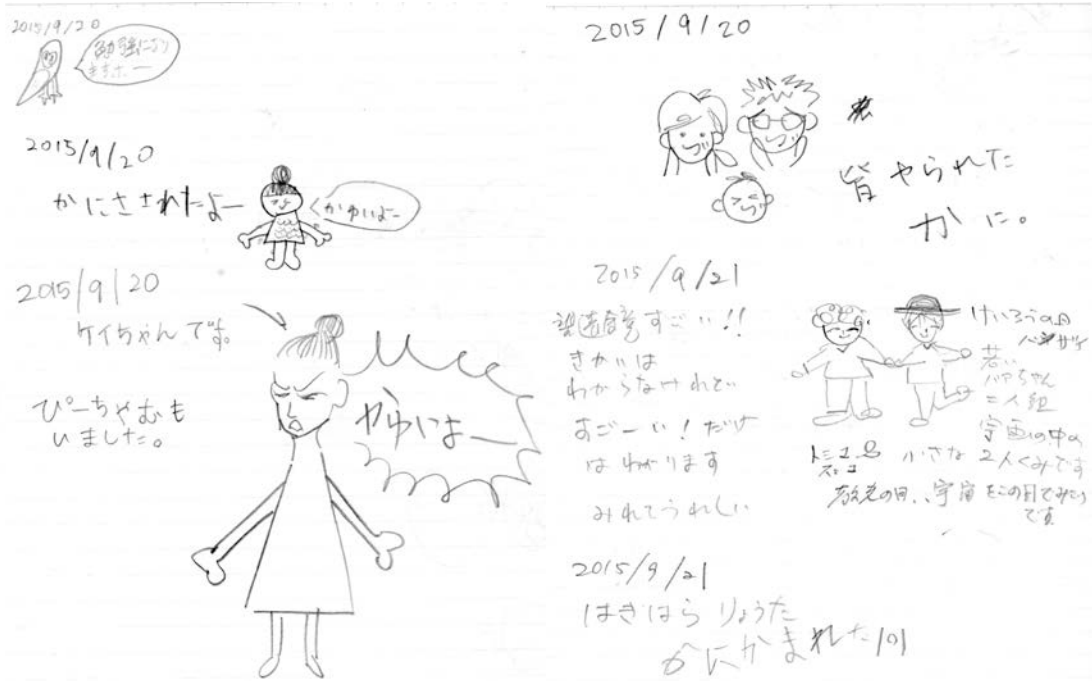 2015/9/20
勉強になり
ますホー
2015/9/20
かにさされたよー
かゆいよー
2015/9/20
ケイちゃんです。
ぴーちゃむも
いました。
かゆいよー
2015/9/20
皆やられた
かに。
2015/9/21
すごーい!!
きかいは
わからなけれど
すごーい!だけ
はわかります
みれてうれしい
けいろうの日
バンザイ
若い
バアちゃん
二人組
宇宙の中の
小さな2人くみです
敬老の日、、宇宙をこの目でみたり
です
2015/9/21
はぎはらりょうた
かにかまれた